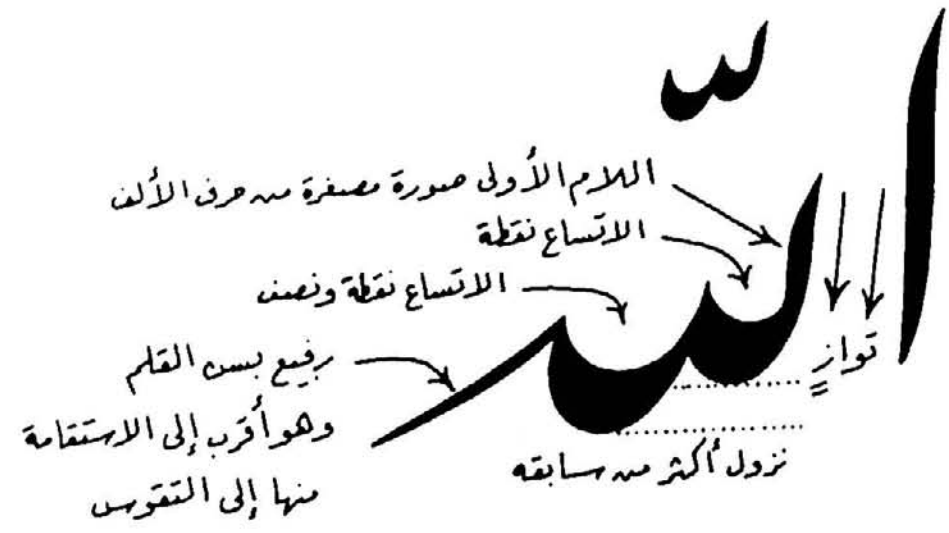 الله
اللام الأولى صورة مصغرة من حرف الألف
الاتساع نقطة
الاتساع نقطة ونصف
توازٍ
رفيع بسن القلم
وهو أقرب إلى الاستقامة
منها إلى التقوس
نزول أكثر من سابقه